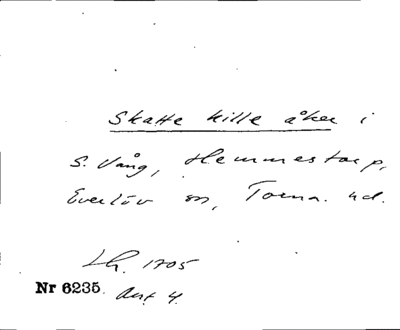 Skatte kille åker i
S. Vång, Hemmestorp,
Everlöv sn, Torna hd.
Lh. 1705
Nr 6235. Ant 4.